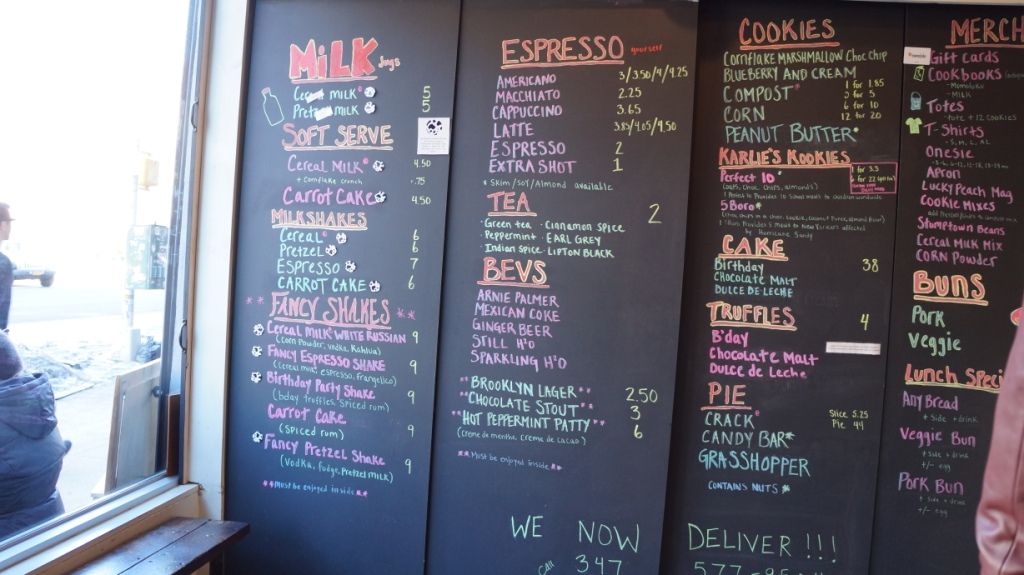 MiLK Jugs
milK 5
milK 5
SOFT SERVE
Cereal MilK 4.50
+ Cornflake crunch +.75
Carrot Cake 4.50
MILKSHAKES
Cereal 6
Pretzel 6
Espresso 7
CARROT CAKE 6
**FANCY SHAKES**
Cereal MilK WHITE RUSSIAN 9
(Corn Powder, vodka, Kahlua)
Fancy Espresso SHAKE 9
(cereal milk, espresso, frangelico)
Birthday Party Shake 9
(bday truffles, Spiced rum)
Carrot Cake 9
(Spiced rum)
Fancy Pretzel Shake 9
(Vodka, fudge, Pretzel milk)
**Must be enjoyed inside**
ESPRESSO yourself
AMERICANO 3/3.50/4/4.25
MACCHIATO 2.25
CAPPUCCINO 3.65
LATTE 3.85/4.05/4.50
ESPRESSO 2
EXTRA SHOT 1
* SKIM/SOY/Almond available
TEA 2
·Green tea ·Cinnamon Spice
·Peppermint ·EARL GREY
·Indian Spice ·LIPTON BLACK
BEVS
ARNIE PALMER
MEXICAN COKE
GINGER BEER
STILL H2O
SPARKLING H2O
**BROOKLYN LAGER** 2.50
**CHOCOLATE STOUT** 3
**HOT PEPPERMINT PATTY** 6
(Creme de menthe, Creme de cacao)
**Must be enjoyed inside**
WE NOW
347
COOKIES
Cornflake MARSHMALLOW Choc Chip
BLUEBERRY AND CREAM 1 for 1.85
COMPOST*
CORN 6 for 10
PEANUT BUTTER* 12 for 20
KARLIE'S KOOKIES
Perfect 10*
(oats, Choc Chips, almonds)
5 Boro*
Hurricane Sandy
CAKE
Birthday 38
CHOCOLATE MALT
DULCE DE LECHE
TRUFFLES 4
B'day
Chocolate Malt
DULCE de Leche
PIE
CRACK* Slice 5.25
Pie 44
CANDY BAR*
GRASSHOPPER
CONTAINS NUTS*
DELIVER!!!
577-
MERCH
Gift Cards
Cookbooks
-Momofuku
-Milk
Totes
·tote + 12 COOKIES
T-Shirts
-S, M, L, XL
Onesie
Apron
LUCKY PEACH Mag
COOKIE MIXES
Stumptown Beans
Cereal Milk Mix
CORN Powder
BUNS
Pork
Veggie
Lunch Speci
Any Bread
+ side + drink
Veggie Bun
+ side + drink
+/- egg
Pork Bun
+ side + drink
+/- egg